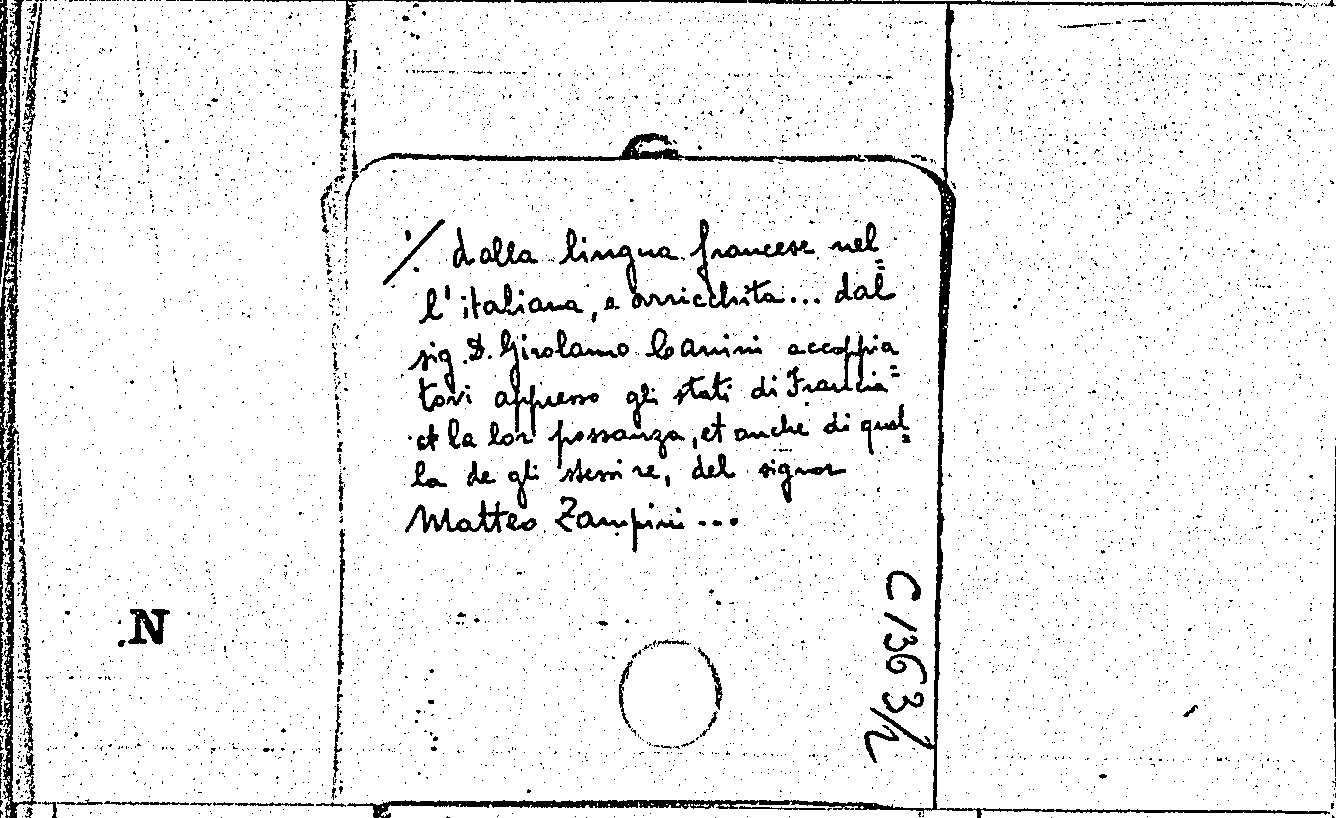 ./. dalla lingua francese nel=
l'italiana, e arricchita... dal
sig. D. Girolamo Canini accoppia
tovi appresso gli stati di Francia=
et la lor possanza, et anche di quel=
la de gli stessi re, del signor
Matteo Zampini...
C 1363/2
.N